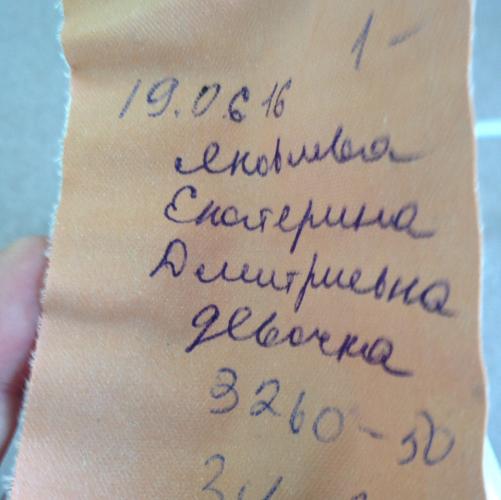 1 -
19.06 16
Яковлева
Екатерина
Дмитриевна
девочка
3260-50